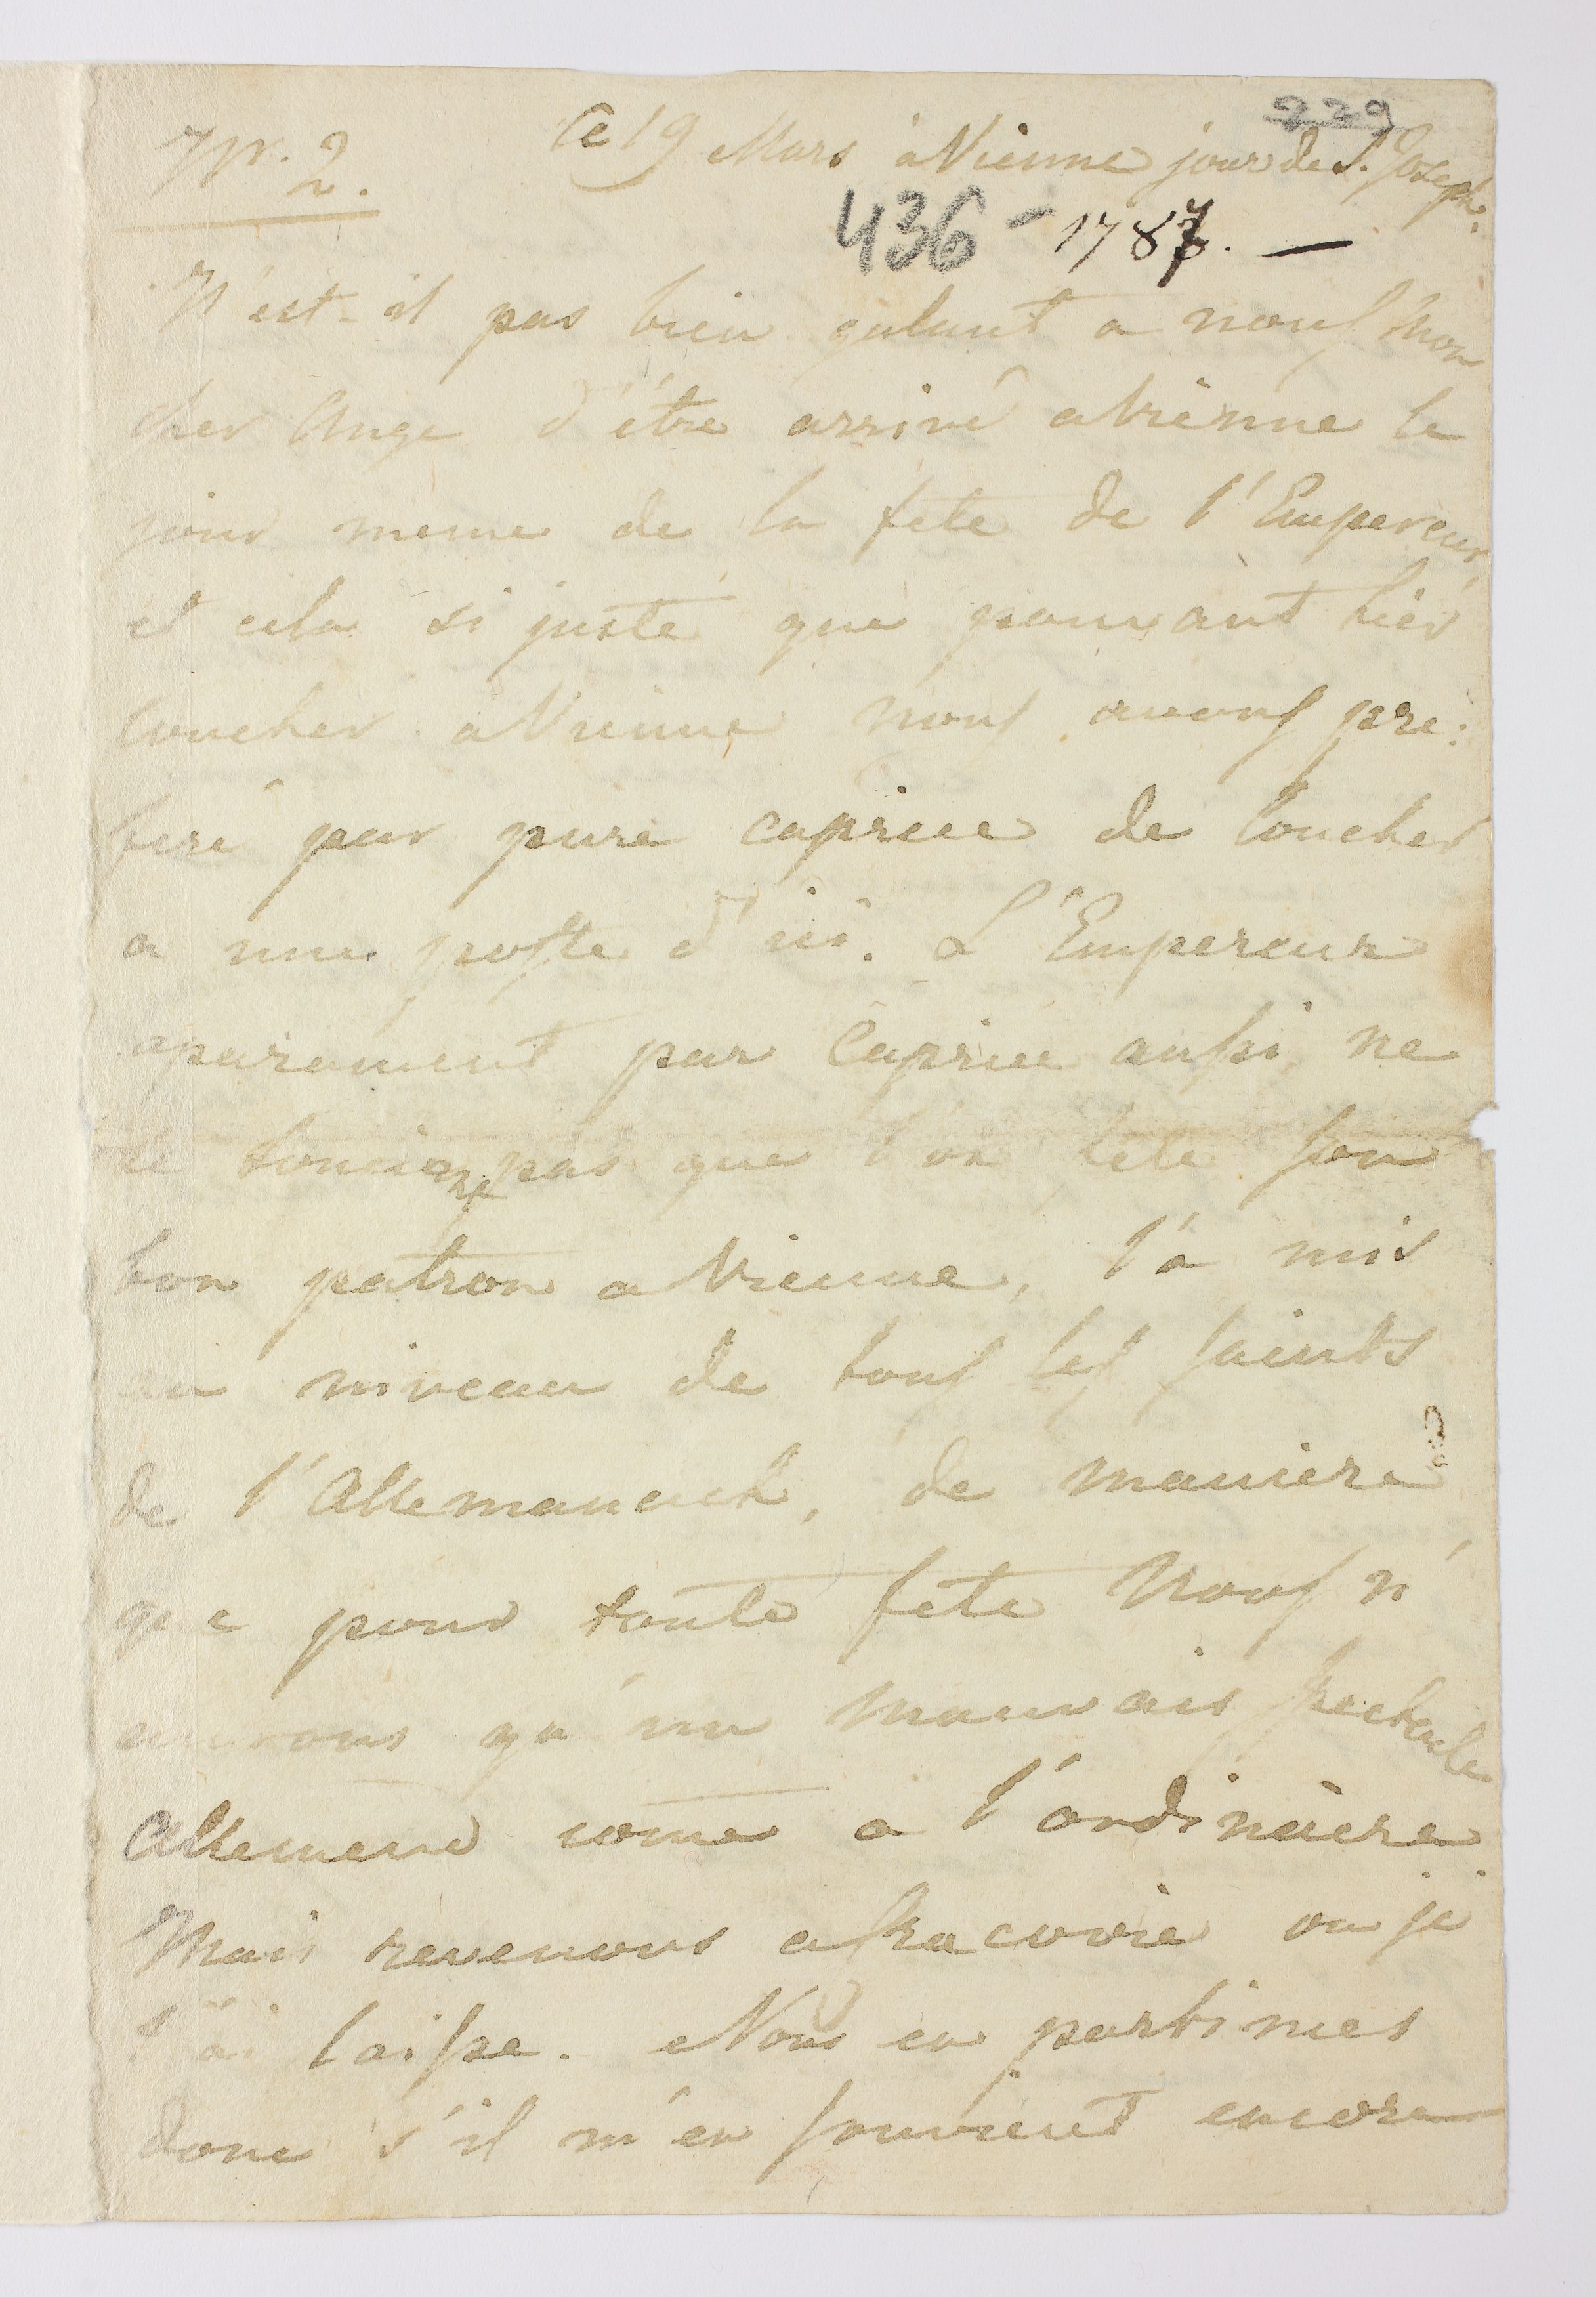 229
Nr. 2. Ce 19 Mars à Vienne jour de S. Joseph.
436 - 1787. —
N'est-il pas bien galant a nous Mon
cher Ange d'étre arrivé a Vienne le
jour meme de la fete de l'Empereur,
et cela si juste que pouvant hier
coucher a Vienne, nous avons pre:
feré par pure caprice de coucher
a une poste d'ici. L'Empereur
aparament par Caprice aussi, ne
se souciant pas que l'on fete son
bon patron a Vienne, l'a mis
au niveau de tous les saints
de l'Allemanach, de maniere
que pour toute fete Nous n'
aurons qu'un mauvais spectacle
Allemend come a l'ordinaire
Mais revenons a Kracovie ou je
t'ai laisse. Nous en partimes
donc s'il m'en souvient encore